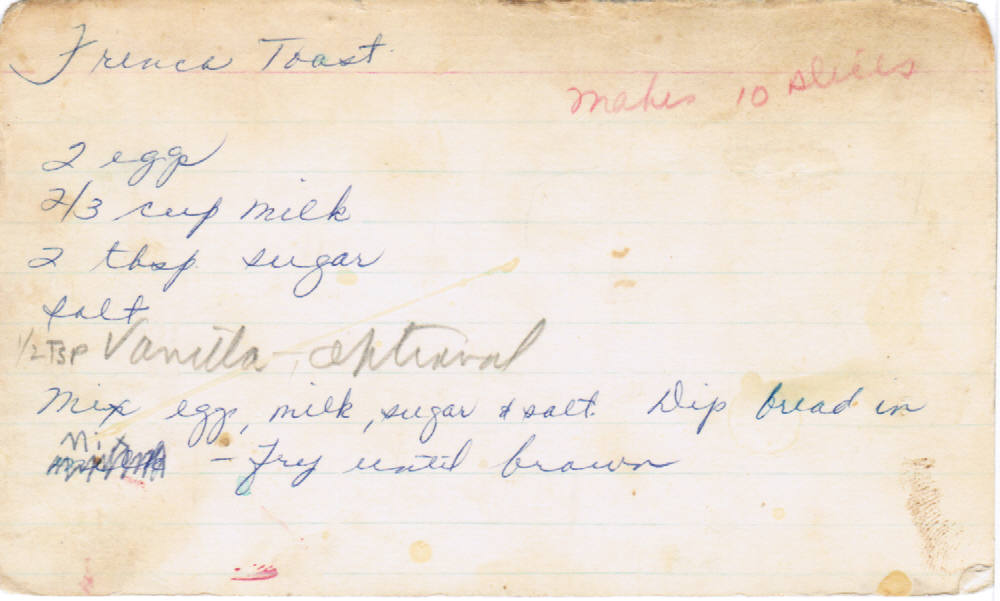 French Toast
Makes 10 slices
2 eggs
2/3 cup milk
2 tbsp. sugar
salt
1/2 TSP Vanilla - optional
Mix egg, milk, sugar & salt. Dip bread in
- Fry until brown